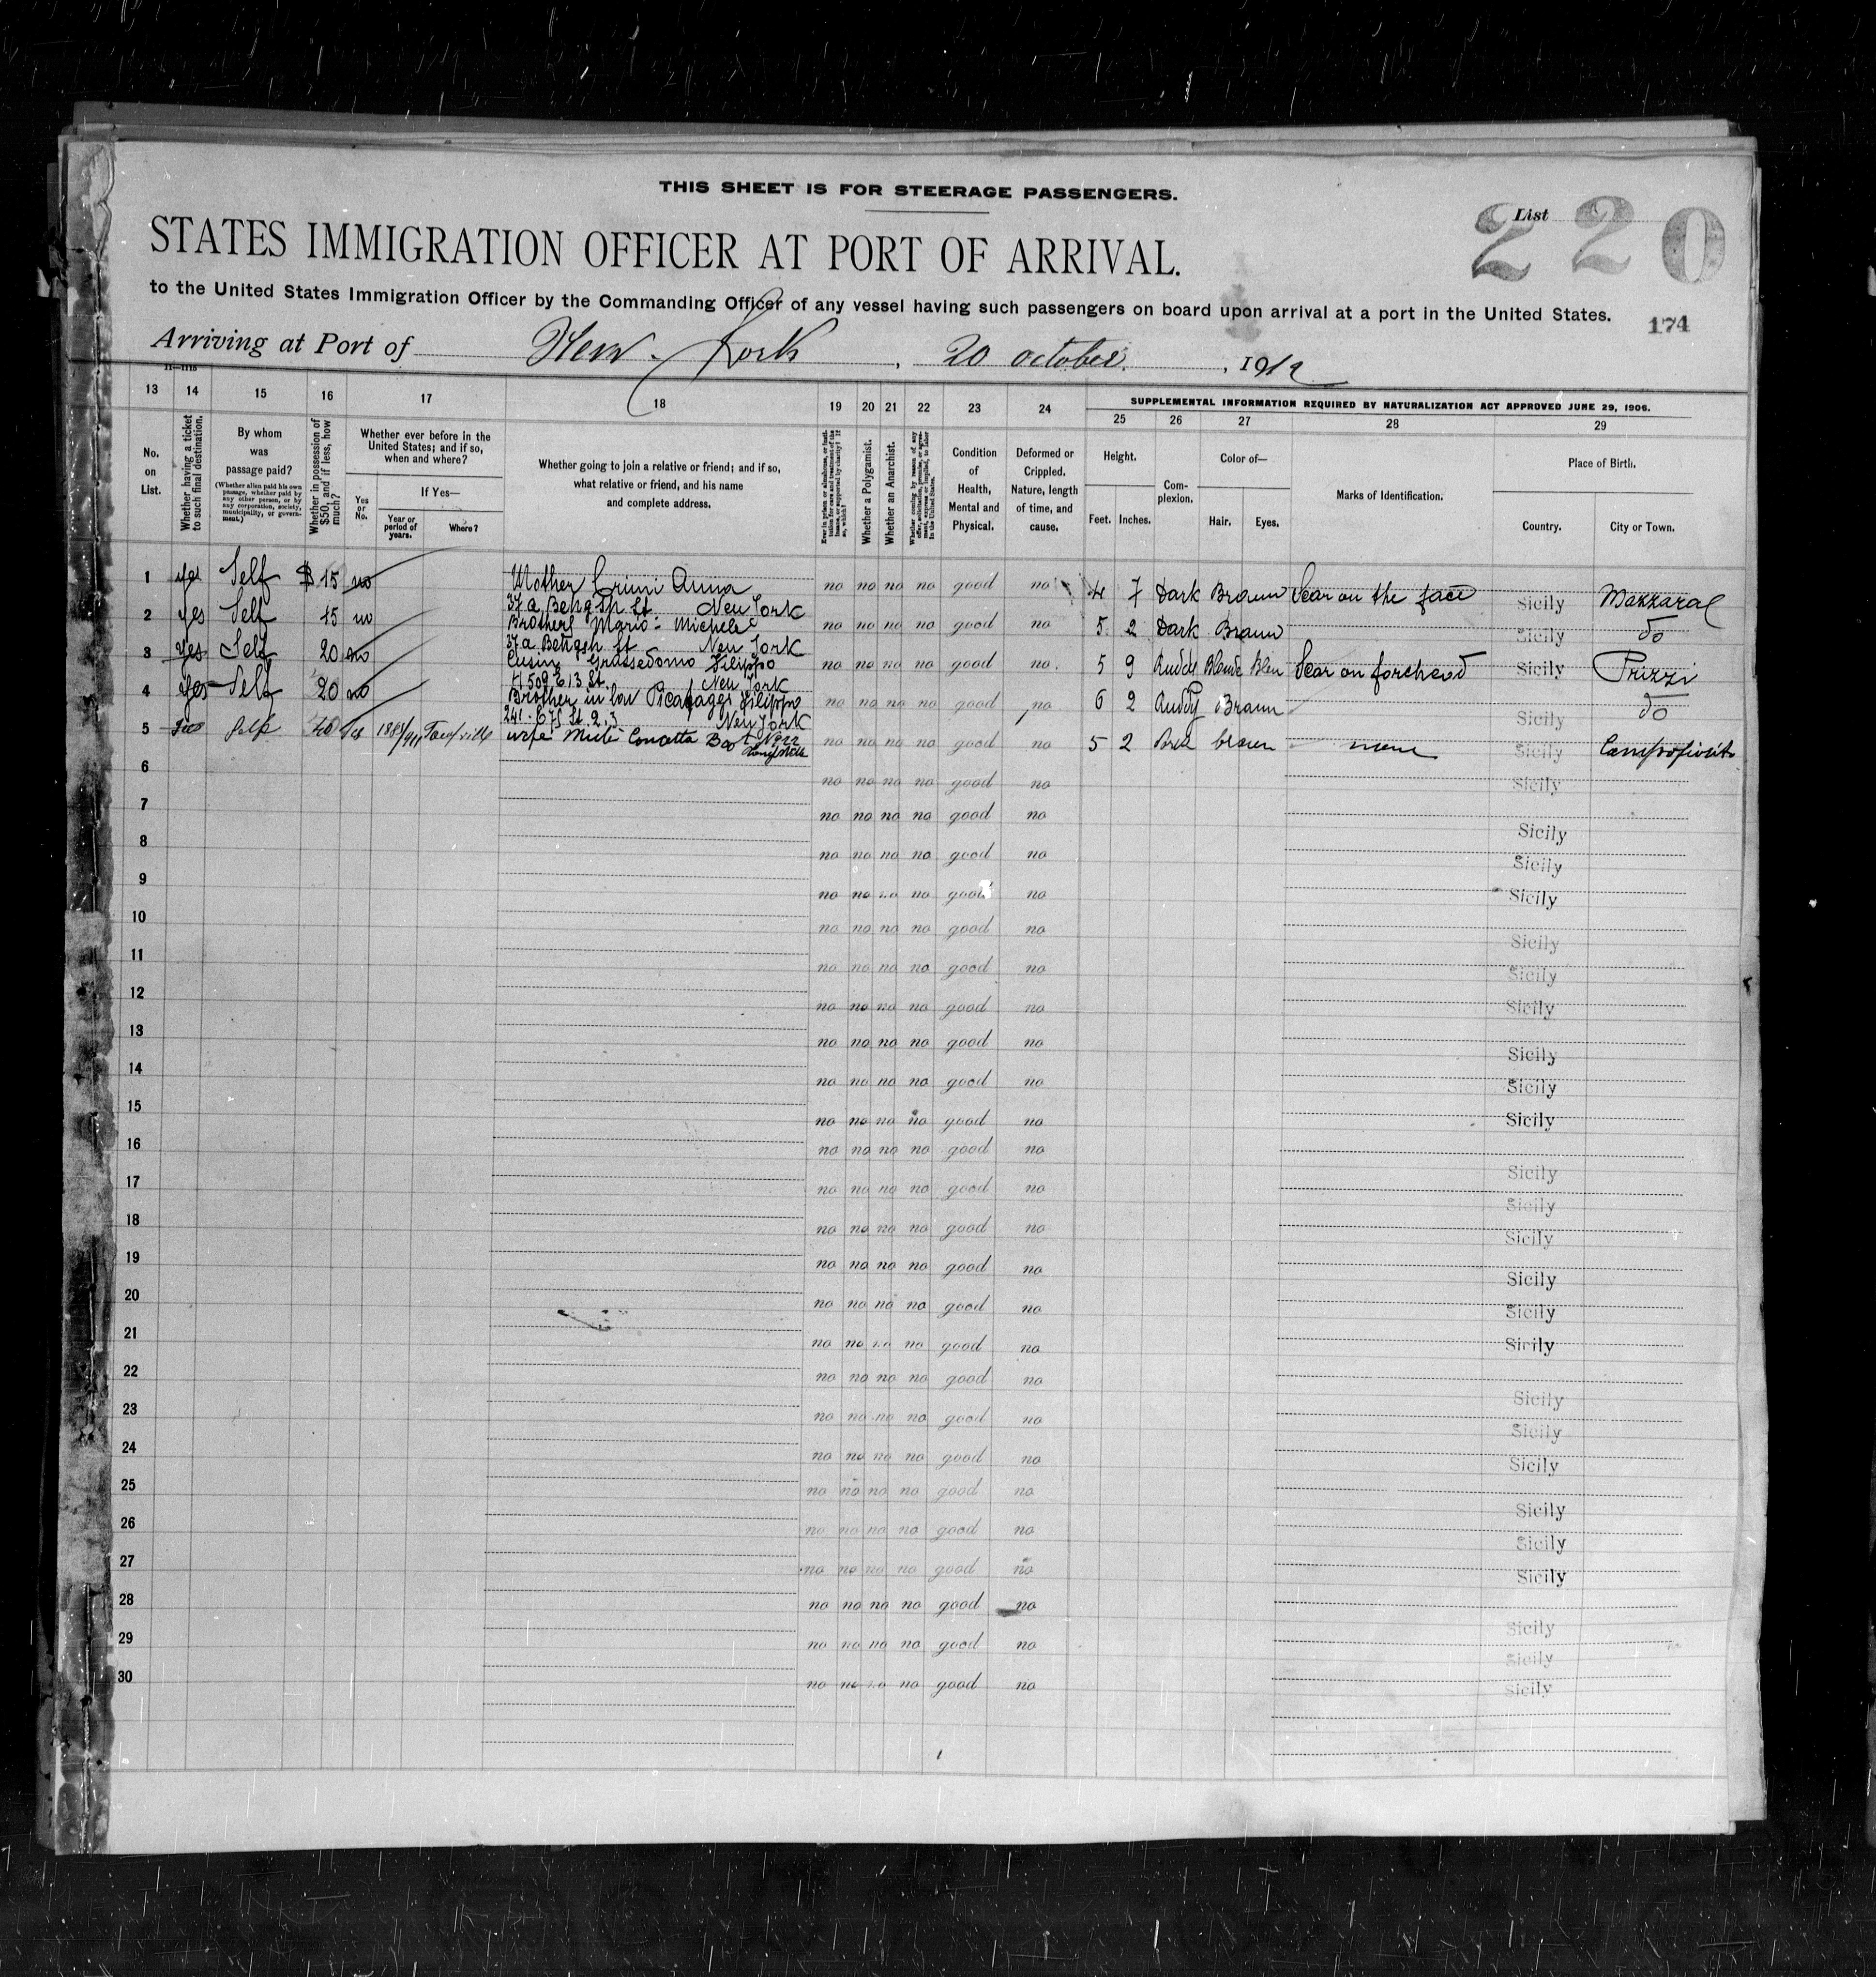 THIS SHEET IS FOR STEERAGE PASSENGERS.
List 220
STATES IMMIGRATION OFFICER AT PORT OF ARRIVAL.
to the United States Immigration Officer by the Commanding Officer of any vessel having such passengers on board upon arrival at a port in the United States.
174
Arriving at Port of New-York, 20 october, 1912
13 14 15 16 17 18 19 20 21 22 23 24
SUPPLEMENTAL INFORMATION REQUIRED BY NATURALIZATION ACT APPROVED JUNE 29, 1906.
25 26 27 28 29
No. on List.
Whether having a ticket to such final destination.
By whom was passage paid?
(Whether alien paid his own passage, whether paid by any other person, or by any corporation, society, municipality, or government.)
Whether in possession of $50, and if less, how much?
Whether ever before in the United States; and if so, when and where?
Yes or No.
If Yes—
Year or period of years.
Where?
Whether going to join a relative or friend; and if so, what relative or friend, and his name and complete address.
Whether a Polygamist.
Whether an Anarchist.
Condition of Health, Mental and Physical.
Deformed or Crippled. Nature, length of time, and cause.
Height.
Feet. Inches.
Complexion.
Color of—
Hair. Eyes.
Marks of Identification.
Place of Birth.
Country. City or Town.
1 yes Self $15 no Mother Crimi Anna no no no no good no 4 7 Dark Brown Scar on the face Sicily Mazzara
New York
2 yes Self 15 no Brother Mario Michele no no no no good no 5 2 Dark Brown Sicily do
New York
3 yes Self 20 no Cusin Filippo no no no no good no 5 9 Ruddy Blonde Bleu Scar on forehead Sicily Prizzi
509 E 13 St. New York
4 yes Self 20 no Brother in law Filippo no no no no good no 6 2 Ruddy Brown Sicily do
New York
5 Self 40 yes wife no no no no good no 5 2 brown none Sicily
6 no no no no good no Sicily
7 no no no no good no Sicily
8 no no no no good no Sicily
9 no no no no good no Sicily
10 no no no no good no Sicily
11 no no no no good no Sicily
12 no no no no good no Sicily
13 no no no no good no Sicily
14 no no no no good no Sicily
15 no no no no good no Sicily
16 no no no no good no Sicily
17 no no no no good no Sicily
18 no no no no good no Sicily
19 no no no no good no Sicily
20 no no no no good no Sicily
21 no no no no good no Sicily
22 no no no no good no Sicily
23 no no no no good no Sicily
24 no no no no good no Sicily
25 no no no no good no Sicily
26 no no no no good no Sicily
27 no no no no good no Sicily
28 no no no no good no Sicily
29 no no no no good no Sicily
30 no no no no good no Sicily